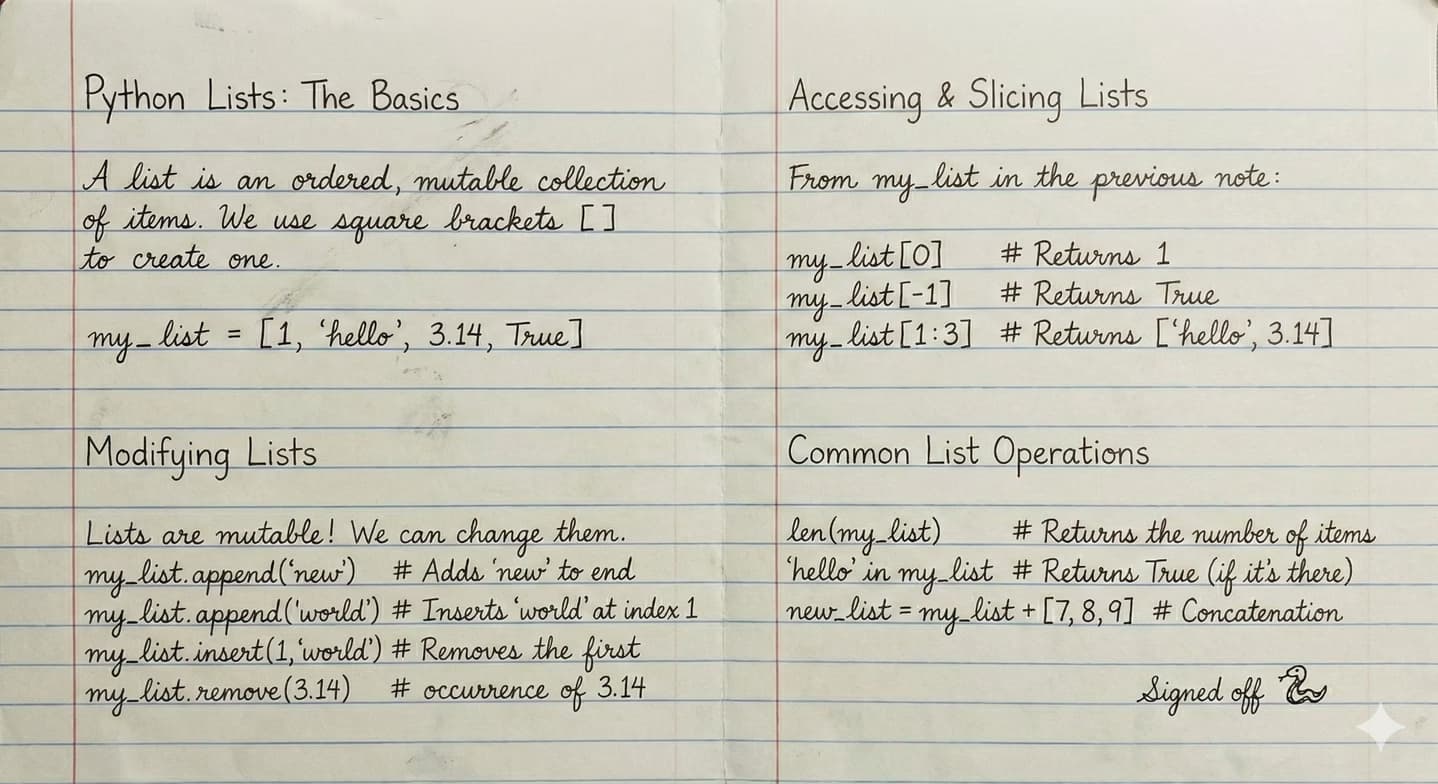 Python Lists: The Basics
A list is an ordered, mutable collection
of items. We use square brackets []
to create one.
my_list = [1, ‘hello’, 3.14, True]
Modifying Lists
Lists are mutable! We can change them.
my_list.append(‘new’) # Adds ‘new’ to end
my_list.append('world') # Inserts ‘world’ at index 1
my_list.insert(1,‘world’) # Removes the first
my_list.remove(3.14) # occurrence of 3.14
Accessing & Slicing Lists
From my_list in the previous note:
my_list[0] # Returns 1
my_list[-1] # Returns True
my_list[1:3] # Returns [‘hello’, 3.14]
Common List Operations
len(my_list) # Returns the number of items
‘hello’ in my_list # Returns True (if it's there)
new_list = my_list + [7, 8, 9] # Concatenation
Signed off